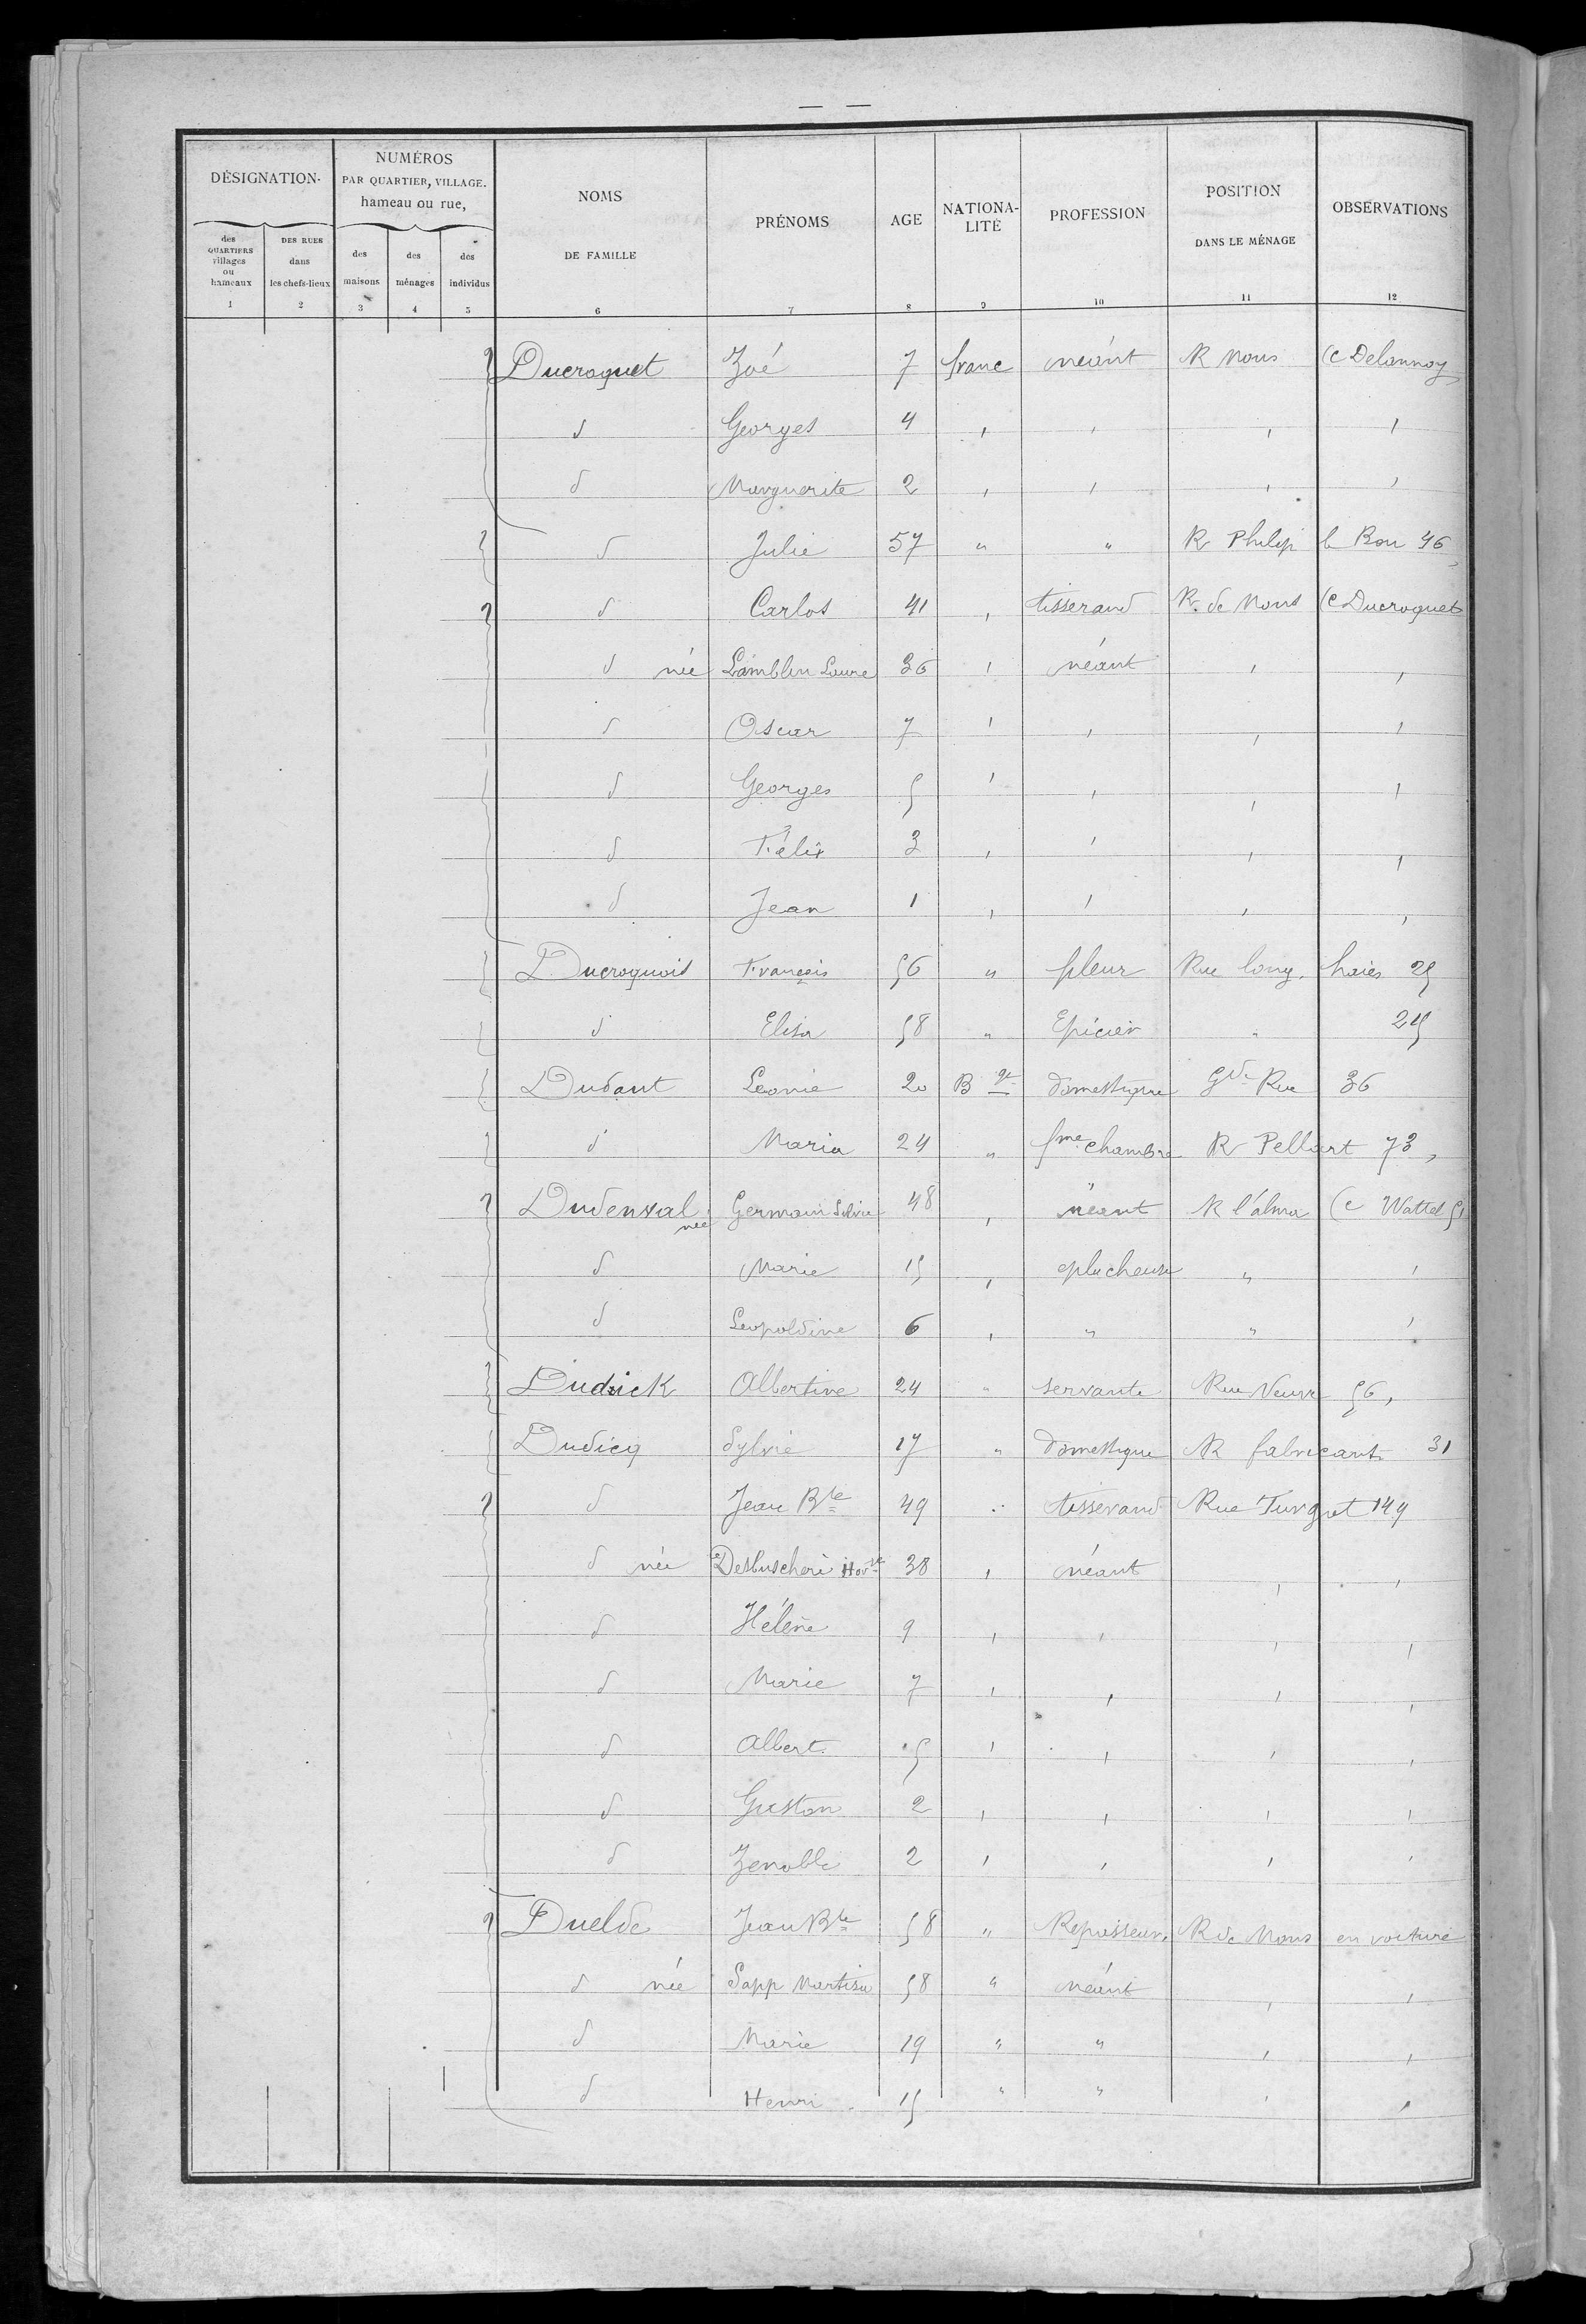 DÉSIGNATION.
NUMÉROS
PAR QUARTIER, VILLAGE.
hameau ou rue,
NOMS
DE FAMILLE
PRÉNOMS
AGE
NATIONA-
LITÉ
PROFESSION
POSITION
DANS LE MÉNAGE
OBSERVATIONS
des
QUARTIERS
villages
ou
hameaux
DES RUES
dans
les chefs-lieux
des
maisons
des
ménages
des
individus
1 2 3 4 5 6 7 8 9 10 11 12
Ducroquet Zoé 7 franc néant R Mons (C Delannoy,
d Georges 4 , , , ,
d Marguerite 2 , , , ,
d Julie 57 " " R Philip le Bon 46,
d Carlos 41 , tisserand R. de Mons (C Ducroquet
d née Lamblin Laure 36 , néant , ,
d Oscar 7 , , , ,
d Georges 5 , , , ,
d Félix 3 , , , ,
d Jean 1 , , , ,
Ducroquois François 56 " fileur Rue long. haies 25
d Elisa 58 " Epicier " 25
Dudant Leonie 20 B ge domestique Gde Rue 36
d Maria 24 " fme chambre R Pellart 73,
Dudenval née Germain Silvie 48 , néant R l'alma (C Wattel 51
d Marie 15 , éplucheuse " ,
d Leopoldine 6 , " " ,
Dudrick Albertine 24 " servante Rue Neuve 56,
Dudicq Sylvie 17 " domestique R fabricants 31
d Jean Bte 49 " tisserand Rue Turgot 149
d née 38 , néant , ,
d Hélène 9 , , , ,
d Marie 7 , , , ,
d Albert 5 , , , ,
d Gaston 2 , , , ,
d Zenoble 2 , , , ,
Duelde Jean Bte 58 " Repasseur, R de Mons en voiture
d née Sapp 58 " néant , ,
d Marie 19 " " , ,
d Henri 15 " " , ,